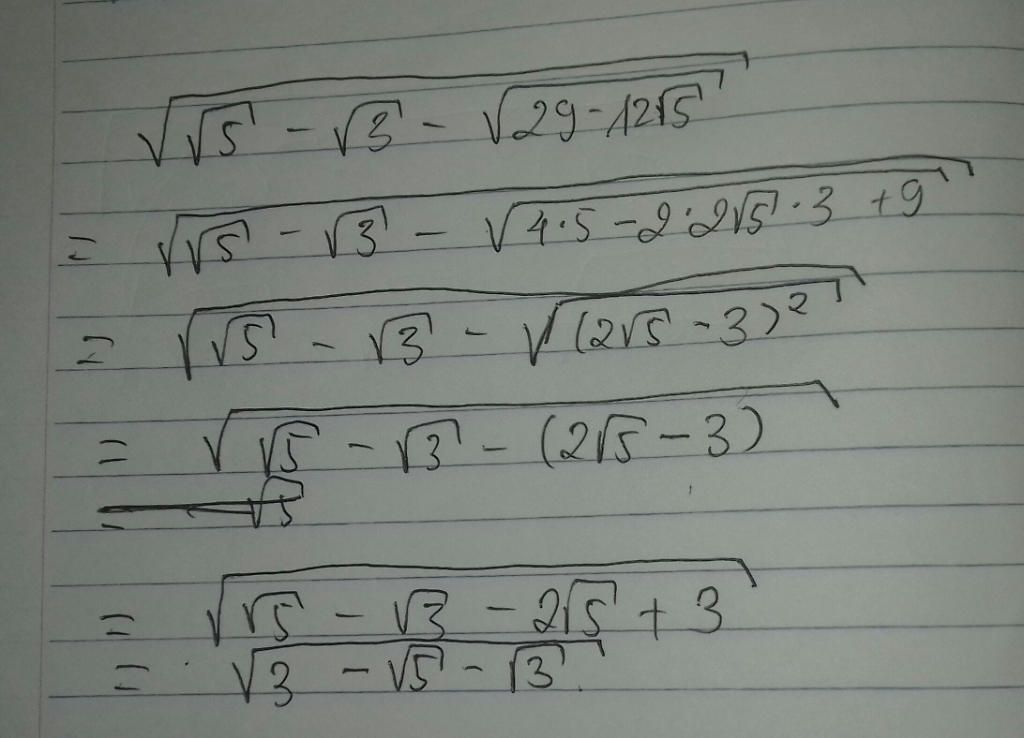 √(√5 - √3 - √(29 - 12√5))
= √(√5 - √3 - √(4·5 - 2·2√5·3 + 9))
= √(√5 - √3 - √((2√5 - 3)²))
= √(√5 - √3 - (2√5 - 3))
= √(√5 - √3 - 2√5 + 3)
= √(3 - √5 - √3)